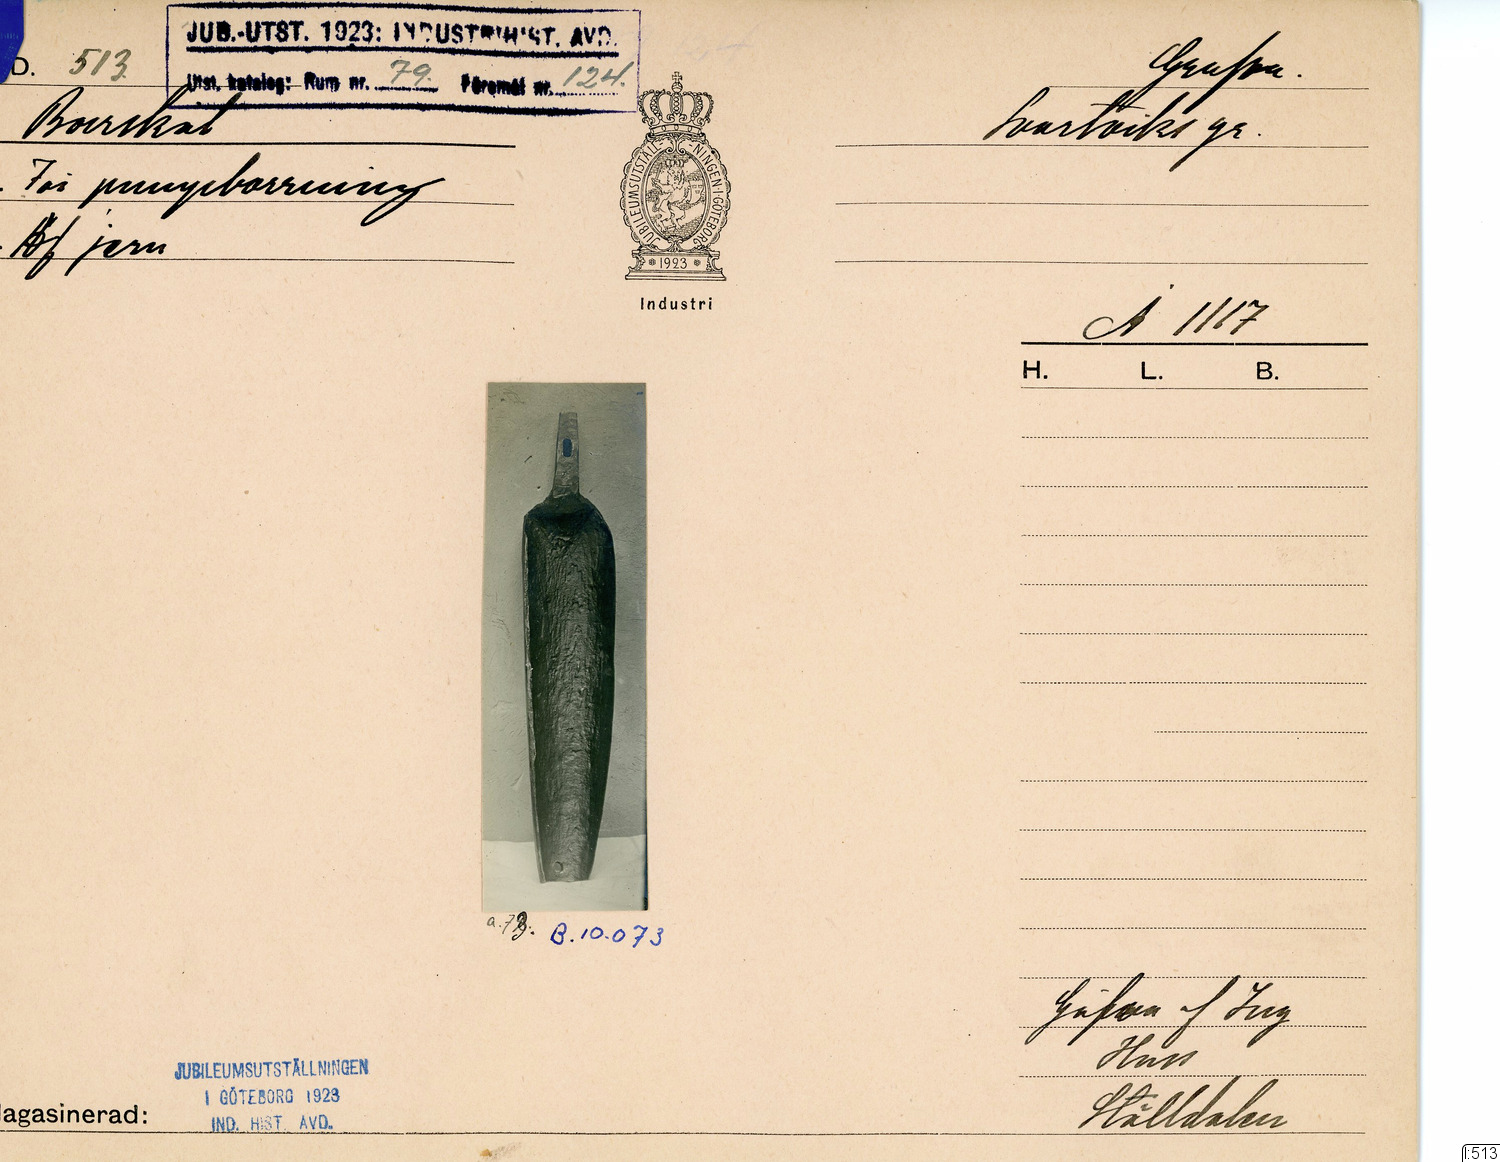 JUB.-UTST. 1923: INDUSTRIHIST. AVD.
D. 513.
Utst. katalog: Rum nr. 79. Föremål nr. 124.
Borrskal
För pumpborrning
Af jern
JUBILEUMSUTSTÄLLNINGEN I GÖTEBORG
1923
Industri
Grufva.
Svartviks gr.
A 1117
H. L. B.
a.73. B.10.073
Gåfva af Ing
Huss
Ställdalen
JUBILEUMSUTSTÄLLNINGEN
I GÖTEBORG 1923
IND. HIST. AVD.
lagasinerad:
I:513